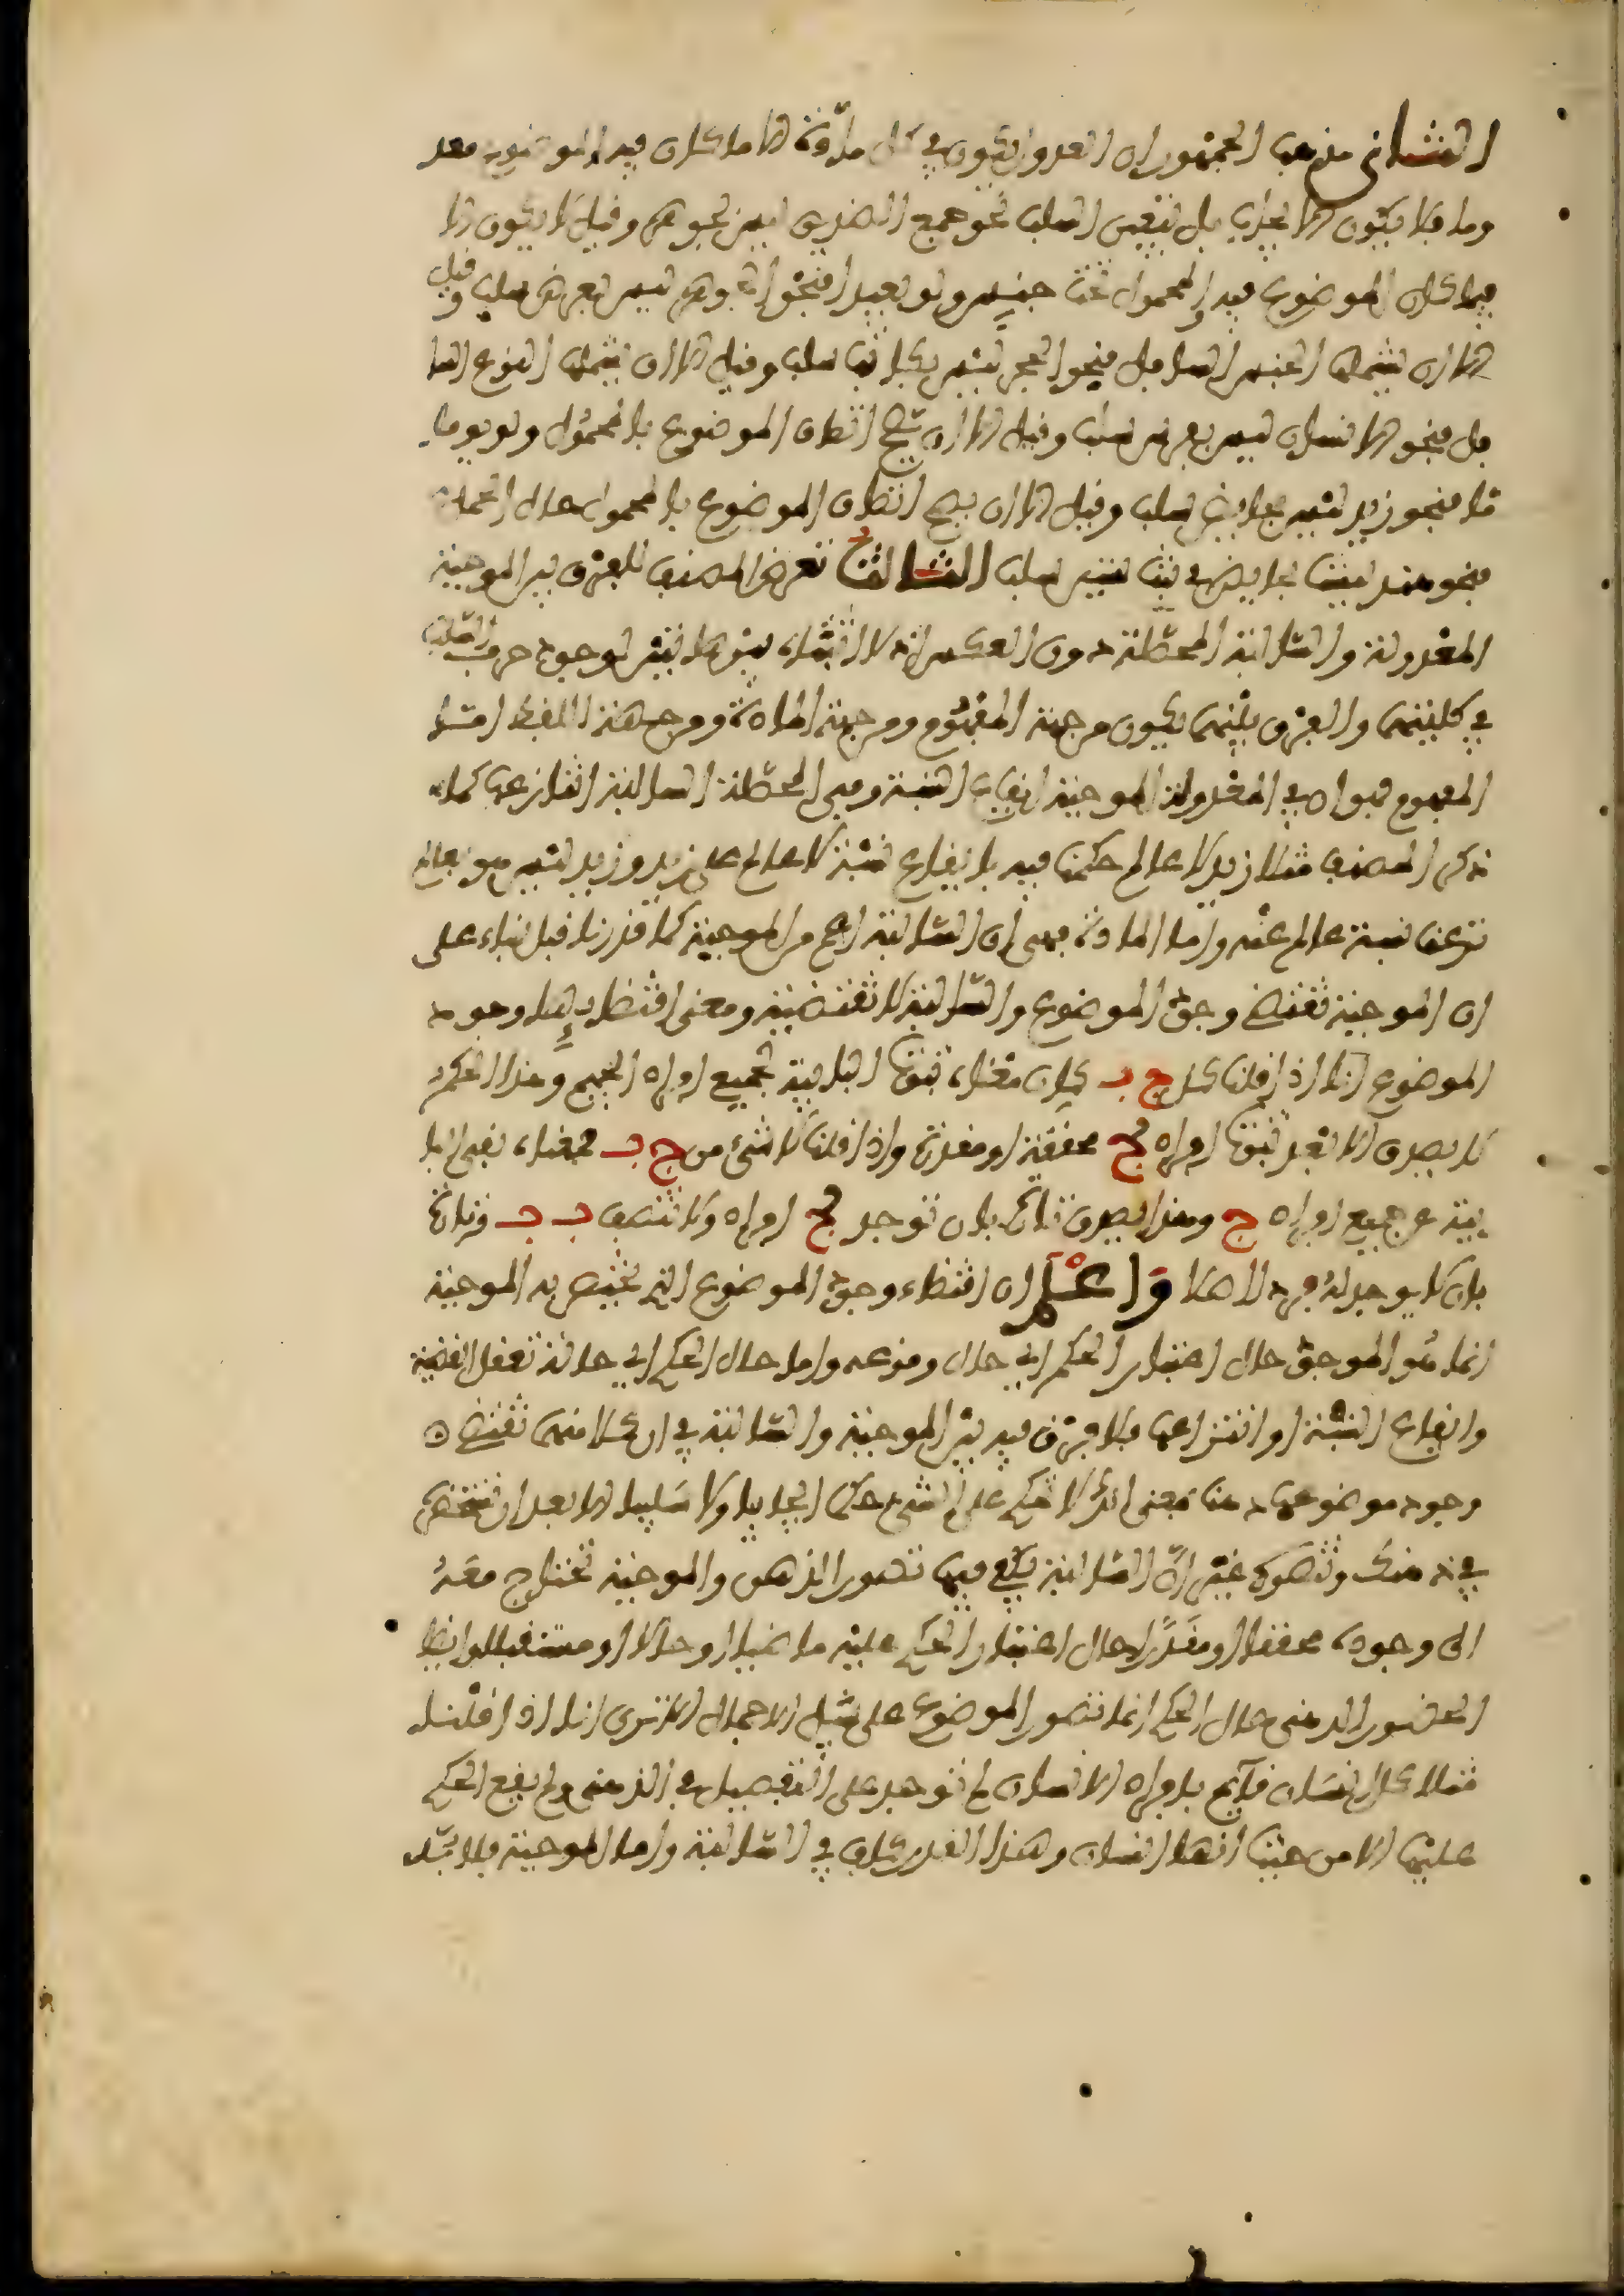 الثاني مذهب الجمهور ان العدول يكون في كل مادة الا ما كان فيه الموضوع معد
وما فلا يكون الا بل يتعين السلب نحو جميع ليس وقيل لا يكون الا
فيما كان الموضوع فيه والمحمول تحت جنس ولو بعيد فنحو الجوهر ليس بعرض سلب وقيل
الا ان يشملها الجنس السافل فنحو الحجر ليس سلب وقيل الا ان يشملها النوع السا
فل فنحو الانسان ليس بفرس سلب وقيل الا ان يصح اتصاف الموضوع بالمحمول ولو يوما
ما فنحو زيد ليس سلب وقيل الا ان يصح اتصاف الموضوع بالمحمول حال الحمل
فنحو هند ليست بحايض في سلب الثالث تعرض المصنف للفرق بين الموجبة
المعدولة والسالبة المحصلة دون العكس اذ لا التباس بين لوجود حرف السلب
في كليتهما والفرق بينهما يكون من جهة المفهوم ومن جهة المادة ومن جهة اللفظ اما
المفهوم فهو ان في المعدولة الموجبة ايقاع النسبة وفي المحصلة السالبة انتزاعها كما
ذكر المصنف مثلا زيد لا عالم حكمنا فيه بايقاع نسبة لا عالم على زيد وزيد ليس هو بعالم
نزعنا نسبة عالم عنه واما المادة فهي ان السالبة اعم من الموجبة كما قررنا قبل بناء على
ان الموجبة تقتضي وجود الموضوع والسالبة لا تقتضيه ومعنى اقتضايها وجود
الموضوع انا اذا قلنا كل ج ب كان معناه ثبوت البايية لجميع افراد الجيم وهذا الحكم
لا يصدق الا بعد ثبوت افراد ج محققة او مقدرة واذا قلنا لا شيء من ج ب فمعناه نفي البا
يية عن جميع افراد ج وهذا يصدق تارة بان توجد ج افراد ولا تتصف ب ب وتارة
بان لا يوجد له فرد اصلا واعلم ان اقتضاء وجود الموضوع الذي تختص به الموجبة
انما هو الموجود حال اعتبار الحكم اي حال وقوعه واما حال الحكم اي حالة تعقل القضية
وايقاع النسبة او انتزاعها فلا فرق فيه بين الموجبة والسالبة في ان كلا منهما تقتضي
وجود موضوعها ذهنا بمعنى انك لا تحكم على الشيء حكما ايجابيا ولا سلبيا الا بعد ان تستحضره
في ذهنك وتتصوره غير ان السالبة يكفي فيها تصور الذهن والموجبة تحتاج معه
الى وجوده محققا او مقدرا حال اعتبار الحكم عليه ماضيا او حالا او مستقبلا وايضا
الحضور الذهني حال الحكم انما تتصور الموضوع على سبيل الاجمال الا ترى انا اذا قلنا
مثلا كل انسان قايم بافراد الانسان لم توجد على التفصيل في الذهن ولم يقع الحكم
عليها الا من حيث انها انسان وهذا القدر كاف في السالبة واما الموجبة فلا بد